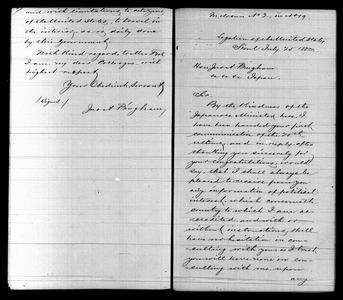 and with limitations, to citizens
of the United States, to travel in
the interior, as is daily done
by this Government.
With kind regard, to Mr Foote
I am, my dear Colleague with
highest respect
Your Obedient Servant
(Signed.)
Jno A Bingham,
Inclosure No 2, in No 19.
Legation of the United States
Seoul July 25 1883
Hon Jno A Bingham
&c &c &c Japan.
Sir
By the kindness of the
Japanese Minister here, I
have been handed your first
communication of the 20th
ultimo, and in reply after
thanking you sincerely for
your congratulations, would
say that I shall always be
pleased to receive from you
any information of political
interest, which concerns the
country to which I am ac-
credited, and with or
without instructions, shall
have no hesitation in con-
sulting with you as I trust
you will have none in con-
sulting with me, upon
any